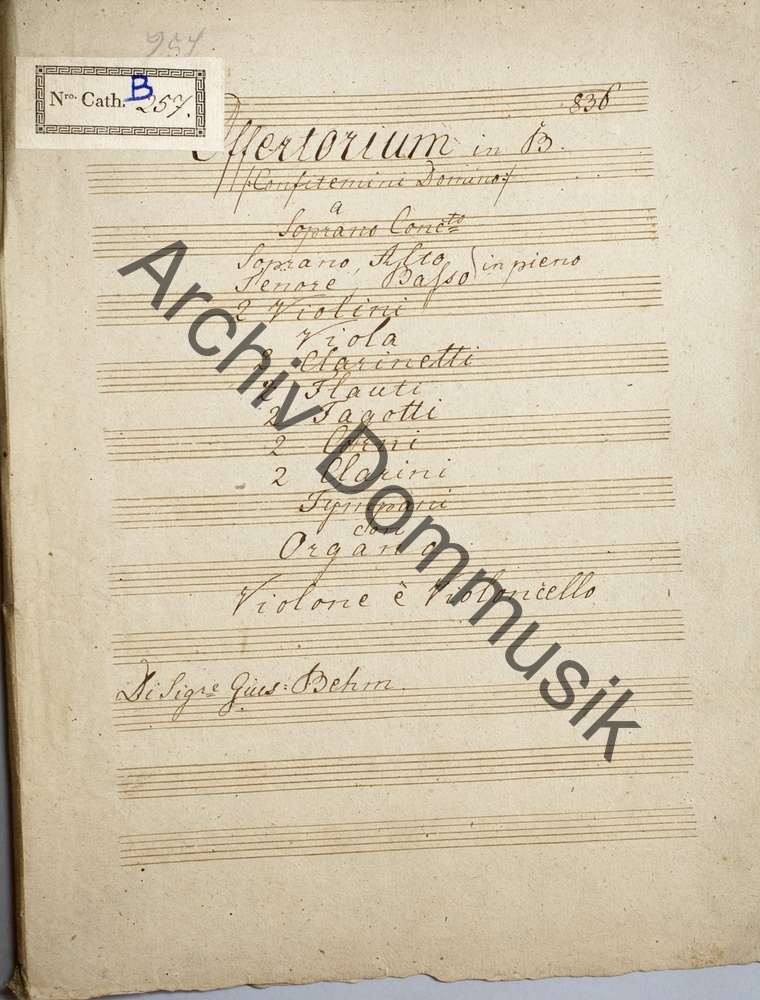 257
Nro. Cath. B 257.
836
Offertorium in B.
/: Confitemini Domino :/
a
Soprano Concto
Soprano, Alto
Tenore, Basso } in pieno
2 Violini
Viola
2 Clarinetti
2 Flauti
2 Fagotti
2 Corni
2 Clarini
Tympani
con
Organo
Violone è Violoncello
Di Sigre Gius: Behm.
Archiv Dommusik